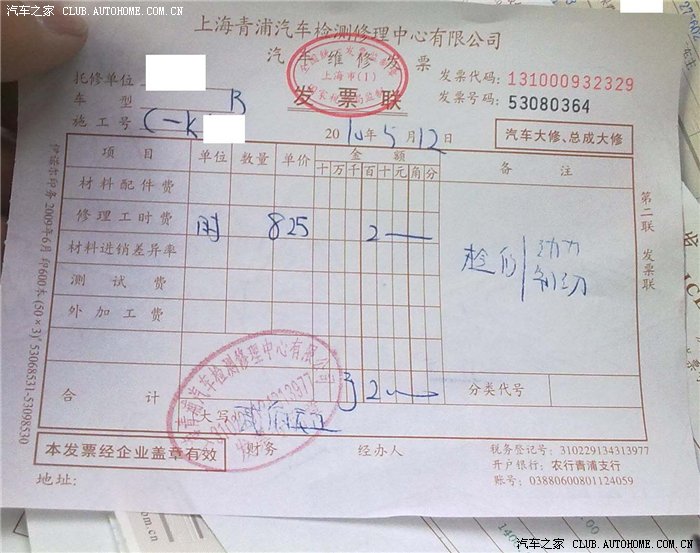 汽车之家 CLUB.AUTOHOME.COM.CN
上海青浦汽车检测修理中心有限公司
汽车维修发票
全国统一发票监制章
上海市(1)
国家税务局监制
发票联
发票代码: 131000932329
发票号码: 53080364
托修单位
车型 R
施工号 C-K
2010年5月12日
汽车大修、总成大修
项目 单位 数量 单价 金额 备注
十万千百十元角分
材料配件费
修理工时费 时 825 2
材料进销差异率
测试费
外加工费
检修 动力 制动
合计 2 分类代号
大写
上海青浦汽车检测修理中心有限公司
310229134313977
本发票经企业盖章有效 财务 经办人
税务登记号: 310229134313977
开户银行: 农行青浦支行
账号: 03880600801124059
地址:
第二联 发票联
2009年6月 印600本 (50×3) 53068531-53098530
汽车之家 CLUB.AUTOHOME.COM.CN